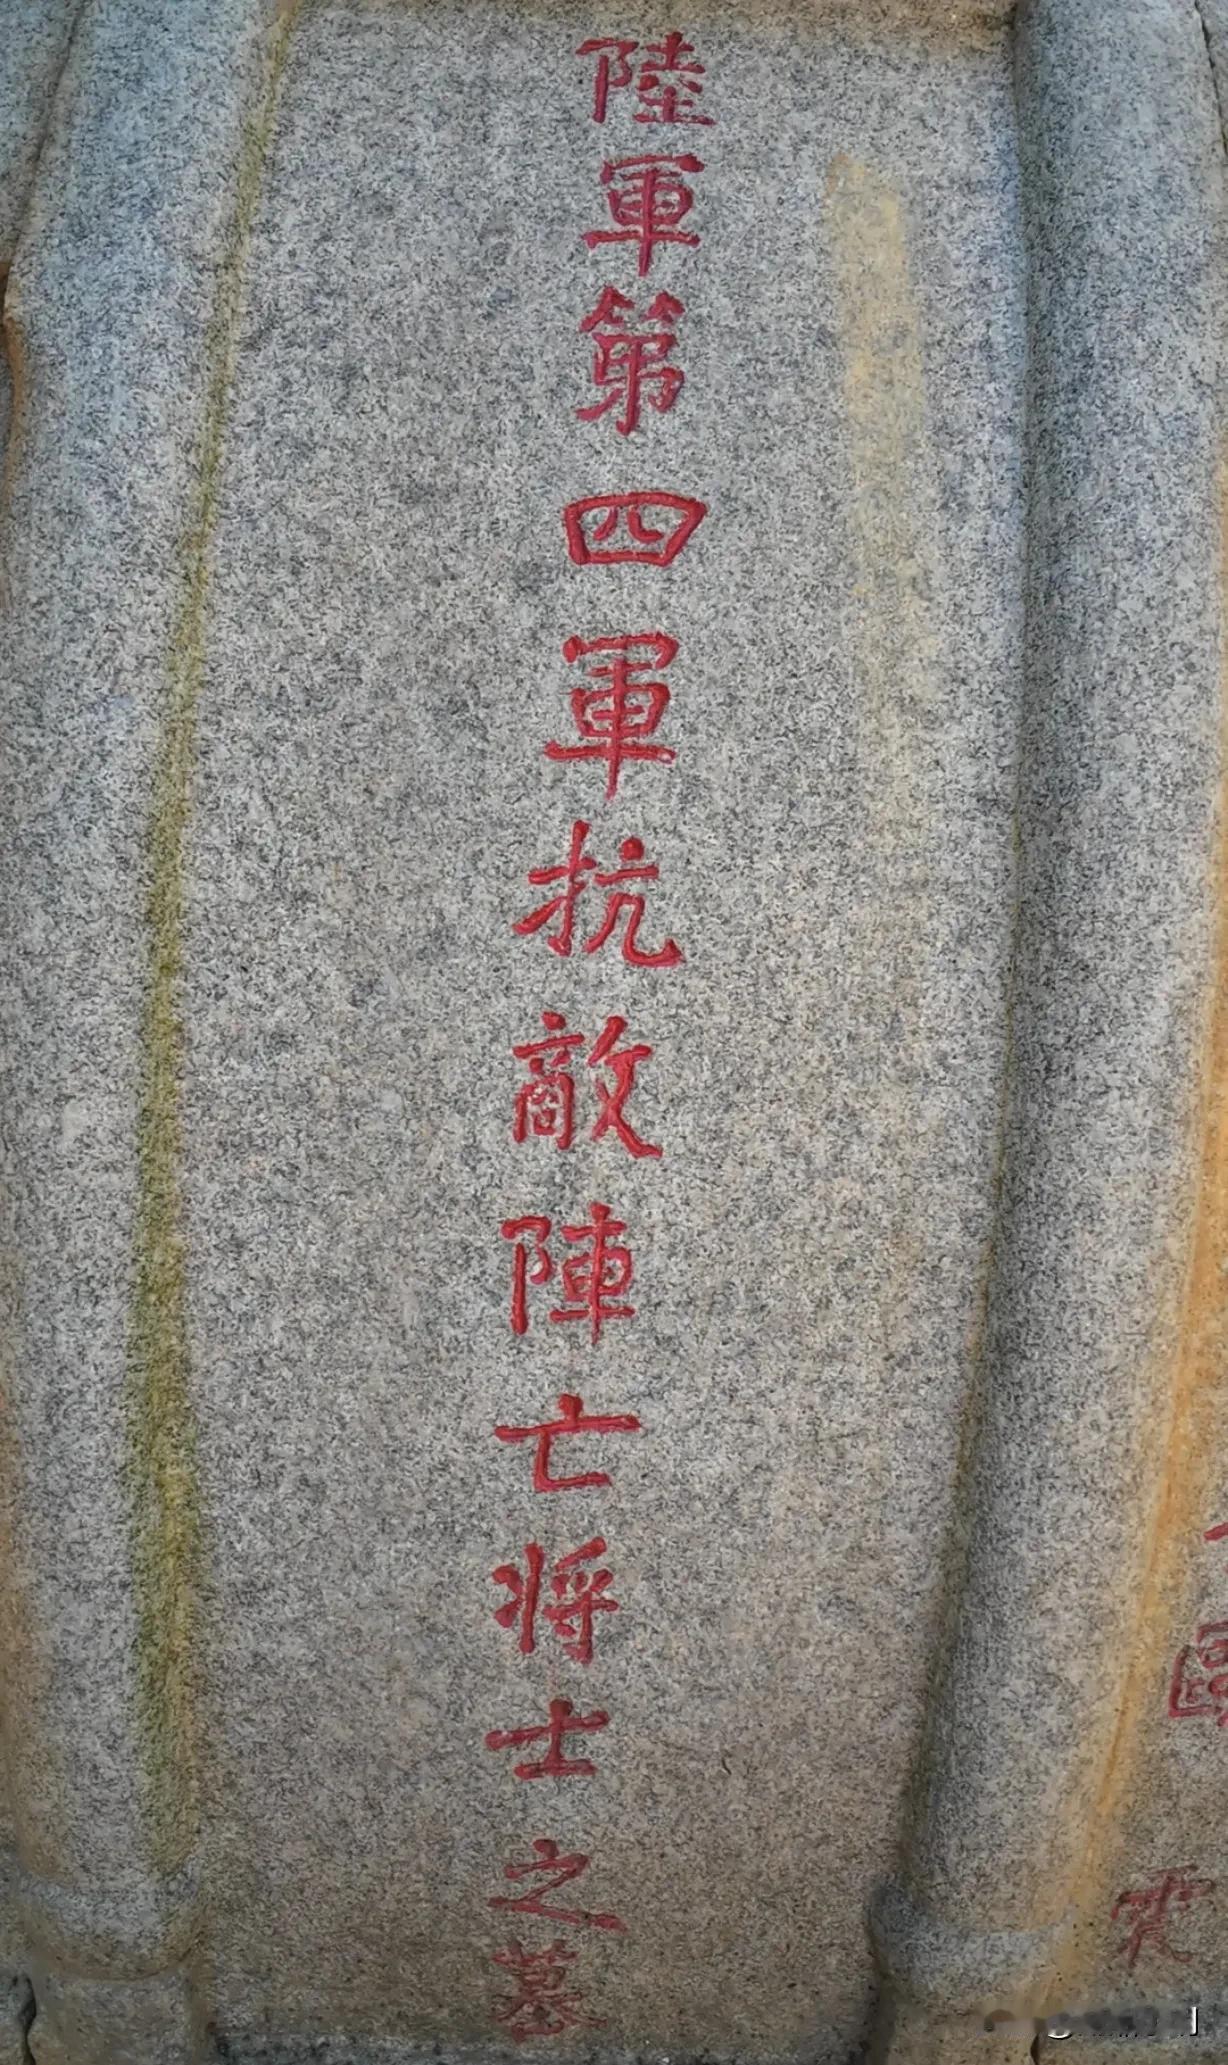 陸軍第四軍抗敵陣亡将士之墓
震